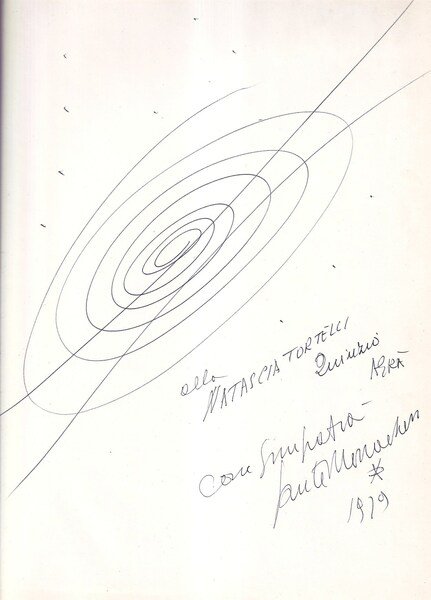 alla
NATASCIA TORTELLI
Quinzio
con simpatia
Sante Monachesi
1979